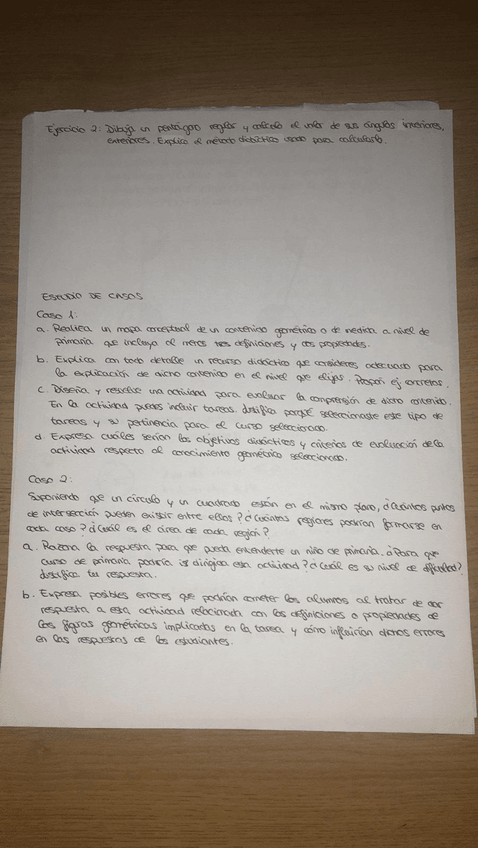 Ejercicio 2: Dibuja un pentágono regular y calcula el valor de sus ángulos interiores,
exteriores. Explica el método didáctico usado para calcularlo.
ESTUDIO DE CASOS
Caso 1:
a. Realiza un mapa conceptual de un contenido geométrico o de medida a nivel de
primaria que incluya al menos tres definiciones y dos propiedades.
b. Explica con todo detalle un recurso didáctico que consideres adecuado para
la explicación de dicho contenido en el nivel que elijas. Propon ej concretos.
c. Diseña y resuelve una actividad para evaluar la comprensión de dicho contenido.
En la actividad puedes incluir tareas. Justifica porqué seleccionaste este tipo de
tareas y su pertinencia para el curso seleccionado.
d. Expresa cuáles serían los objetivos didácticos y criterios de evaluación de la
actividad respecto al conocimiento geométrico seleccionado.
Caso 2:
Suponiendo que un círculo y un cuadrado están en el mismo plano, ¿Cuántos puntos
de intersección pueden existir entre ellos? ¿Cuántas regiones podrían formarse en
cada caso? ¿Cuál es el área de cada región?
a. Razona la respuesta para que pueda entenderte un niño de primaria. ¿Para que
curso de primaria podría ir dirigida esta actividad? ¿Cuál es su nivel de dificultad?
Justifica tu respuesta.
b. Expresa posibles errores que podrían cometer los alumnos al tratar de dar
respuesta a esta actividad relacionada con las definiciones o propiedades de
las figuras geométricas implicadas en la tarea y cómo influirían dichos errores
en las respuestas de los estudiantes.